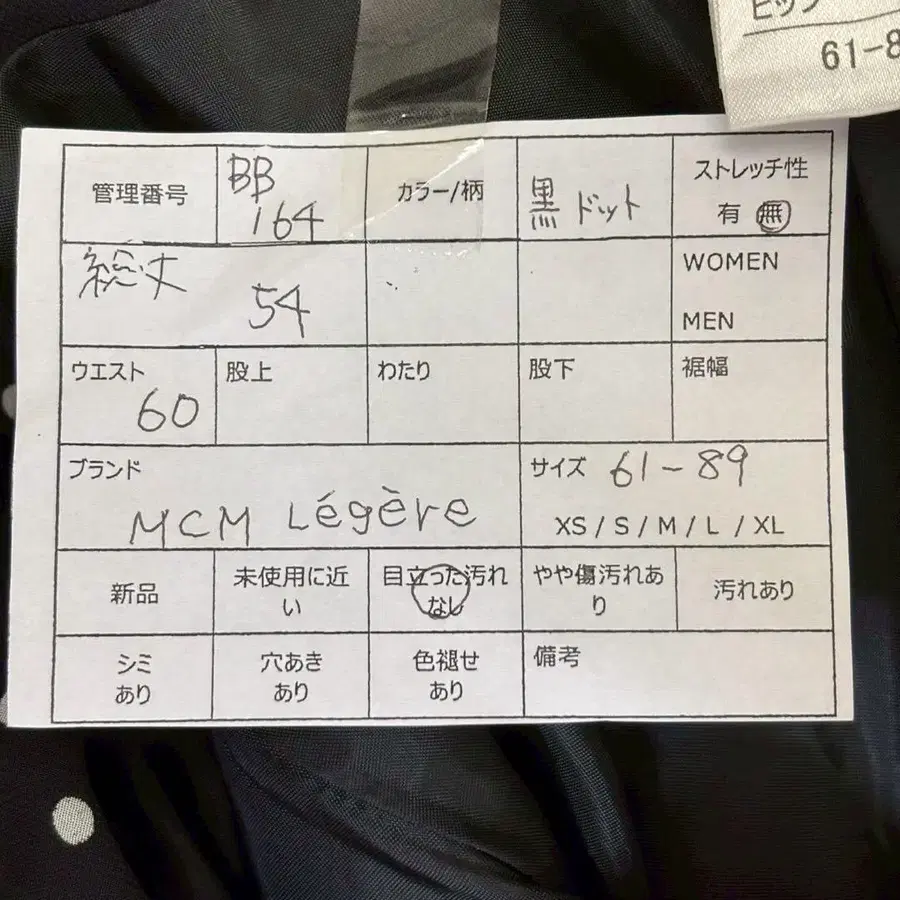 ヒップ
61-8
管理番号
BB
164
カラー/柄
黒 ドット
ストレッチ性
有 無
総丈
54
WOMEN
MEN
ウエスト
60
股上
わたり
股下
裾幅
ブランド
MCM Légère
サイズ 61-89
XS / S / M / L / XL
新品
未使用に近
い
目立った汚れ
なし
やや傷汚れあ
り
汚れあり
シミ
あり
穴あき
あり
色褪せ
あり
備考